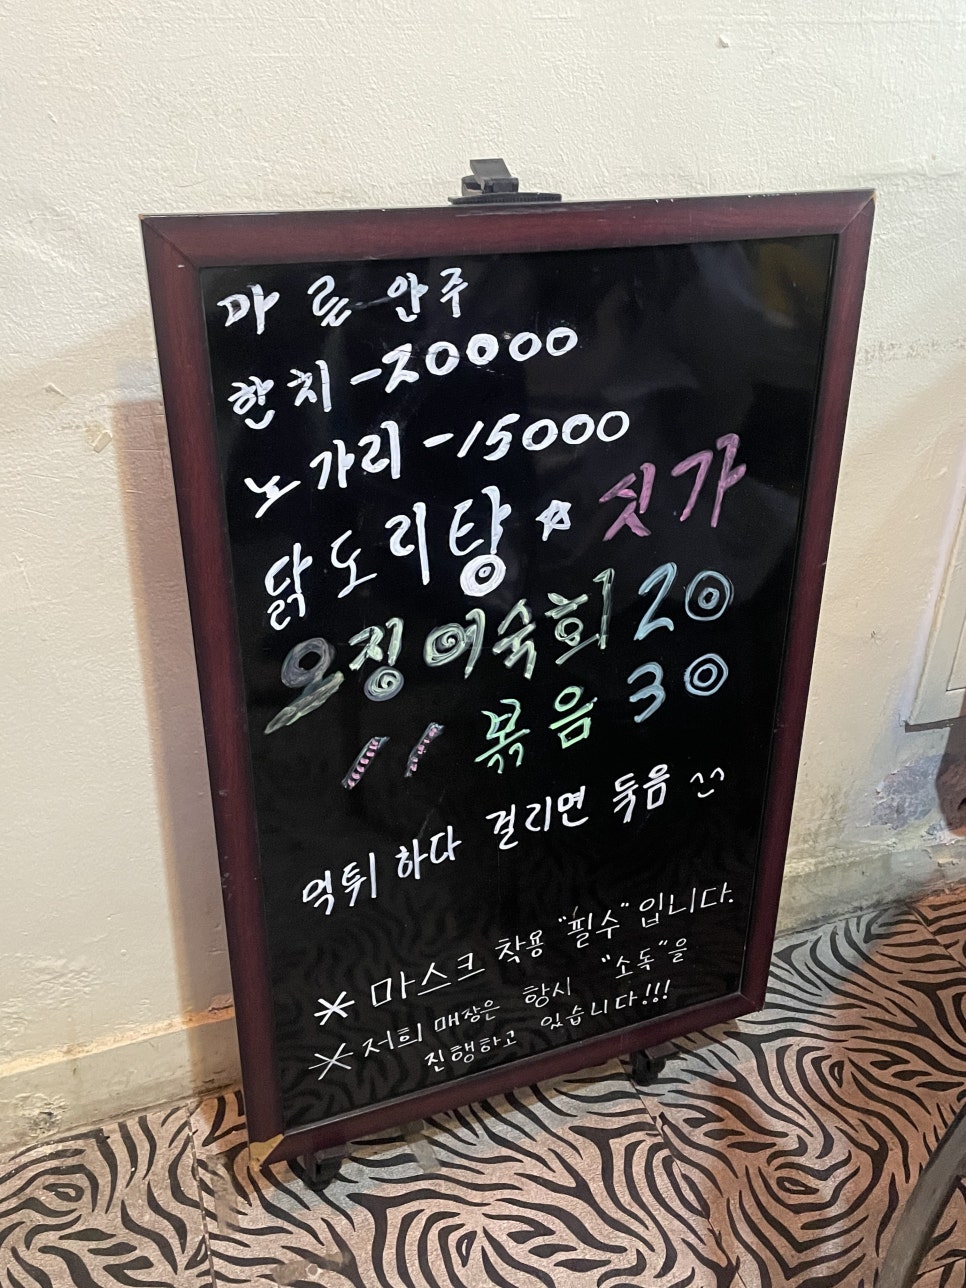 마른안주
한치-20000
노가리-15000
닭도리탕☆싯가
오징어숙회 20
〃 볶음 30
먹튀하다 걸리면 둑음 ^^
* 마스크 착용 "필수" 입니다.
* 저희 매장은 항시 "소독"을
진행하고 있습니다!!!